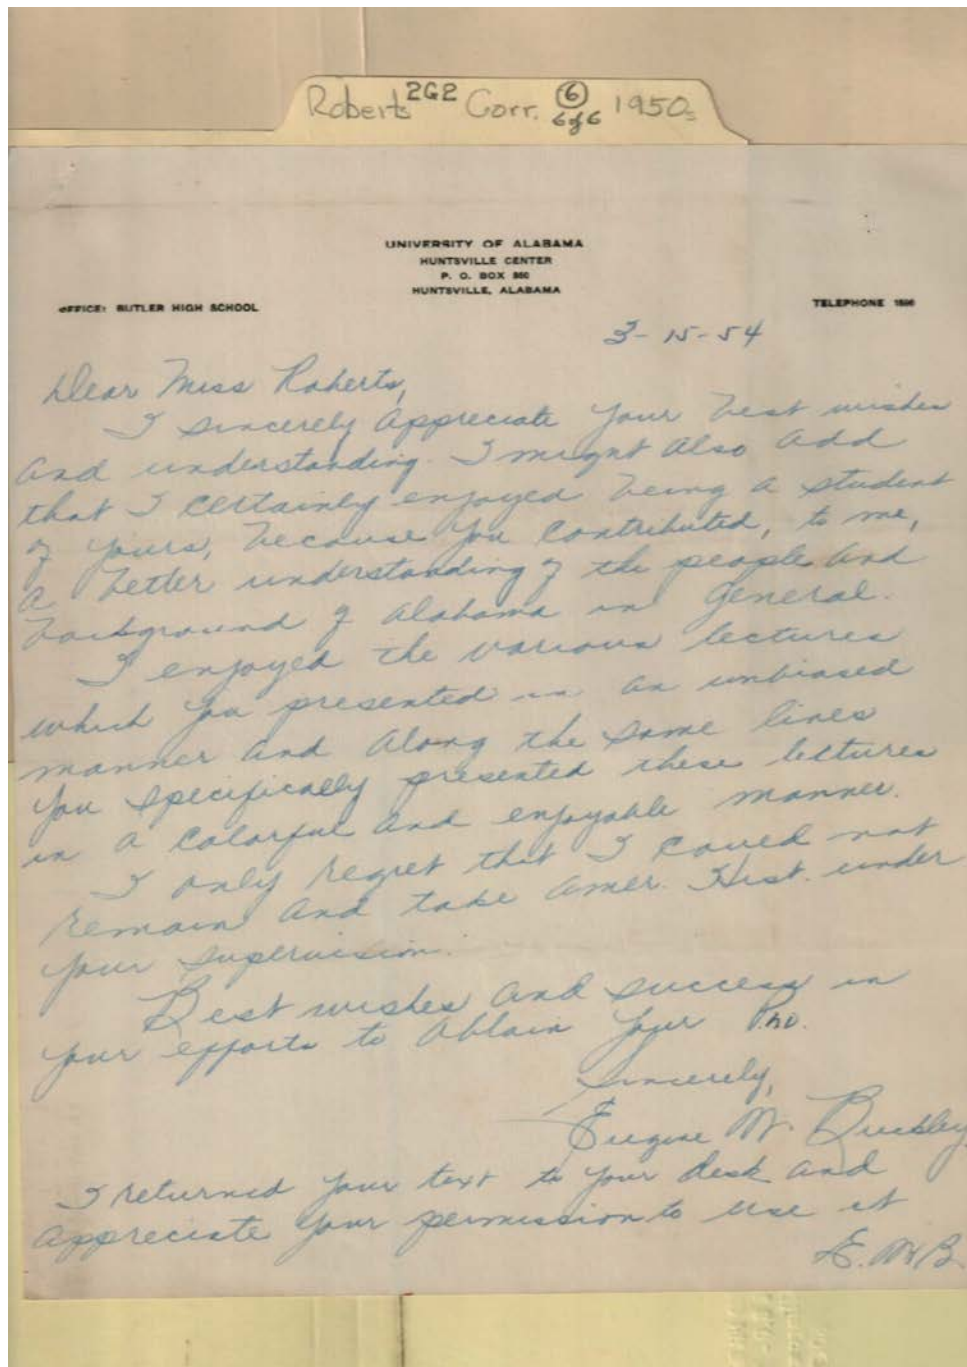 Roberts 2G2 Corr. 6 6 of 6 1950s
UNIVERSITY OF ALABAMA
HUNTSVILLE CENTER
P. O. BOX
HUNTSVILLE, ALABAMA
OFFICE: BUTLER HIGH SCHOOL
TELEPHONE
3-15-54
Dear Miss Roberts,
I sincerely appreciate your best wishes
and understanding. I might also add
that I certainly enjoyed being a student
of yours, because you contributed, to me,
a better understanding of the people and
background of Alabama in general.
I enjoyed the various lectures
which you presented in an unbiased
manner and along the same lines
you specifically presented these lectures
in a colorful and enjoyable manner.
I only regret that I could not
remain and take Amer. Hist. under
your supervision.
Best wishes and success in
your efforts to obtain your PhD.
Sincerely,
Eugene M. Buckley
I returned your text to your desk and
appreciate your permission to use it
E. M. B.